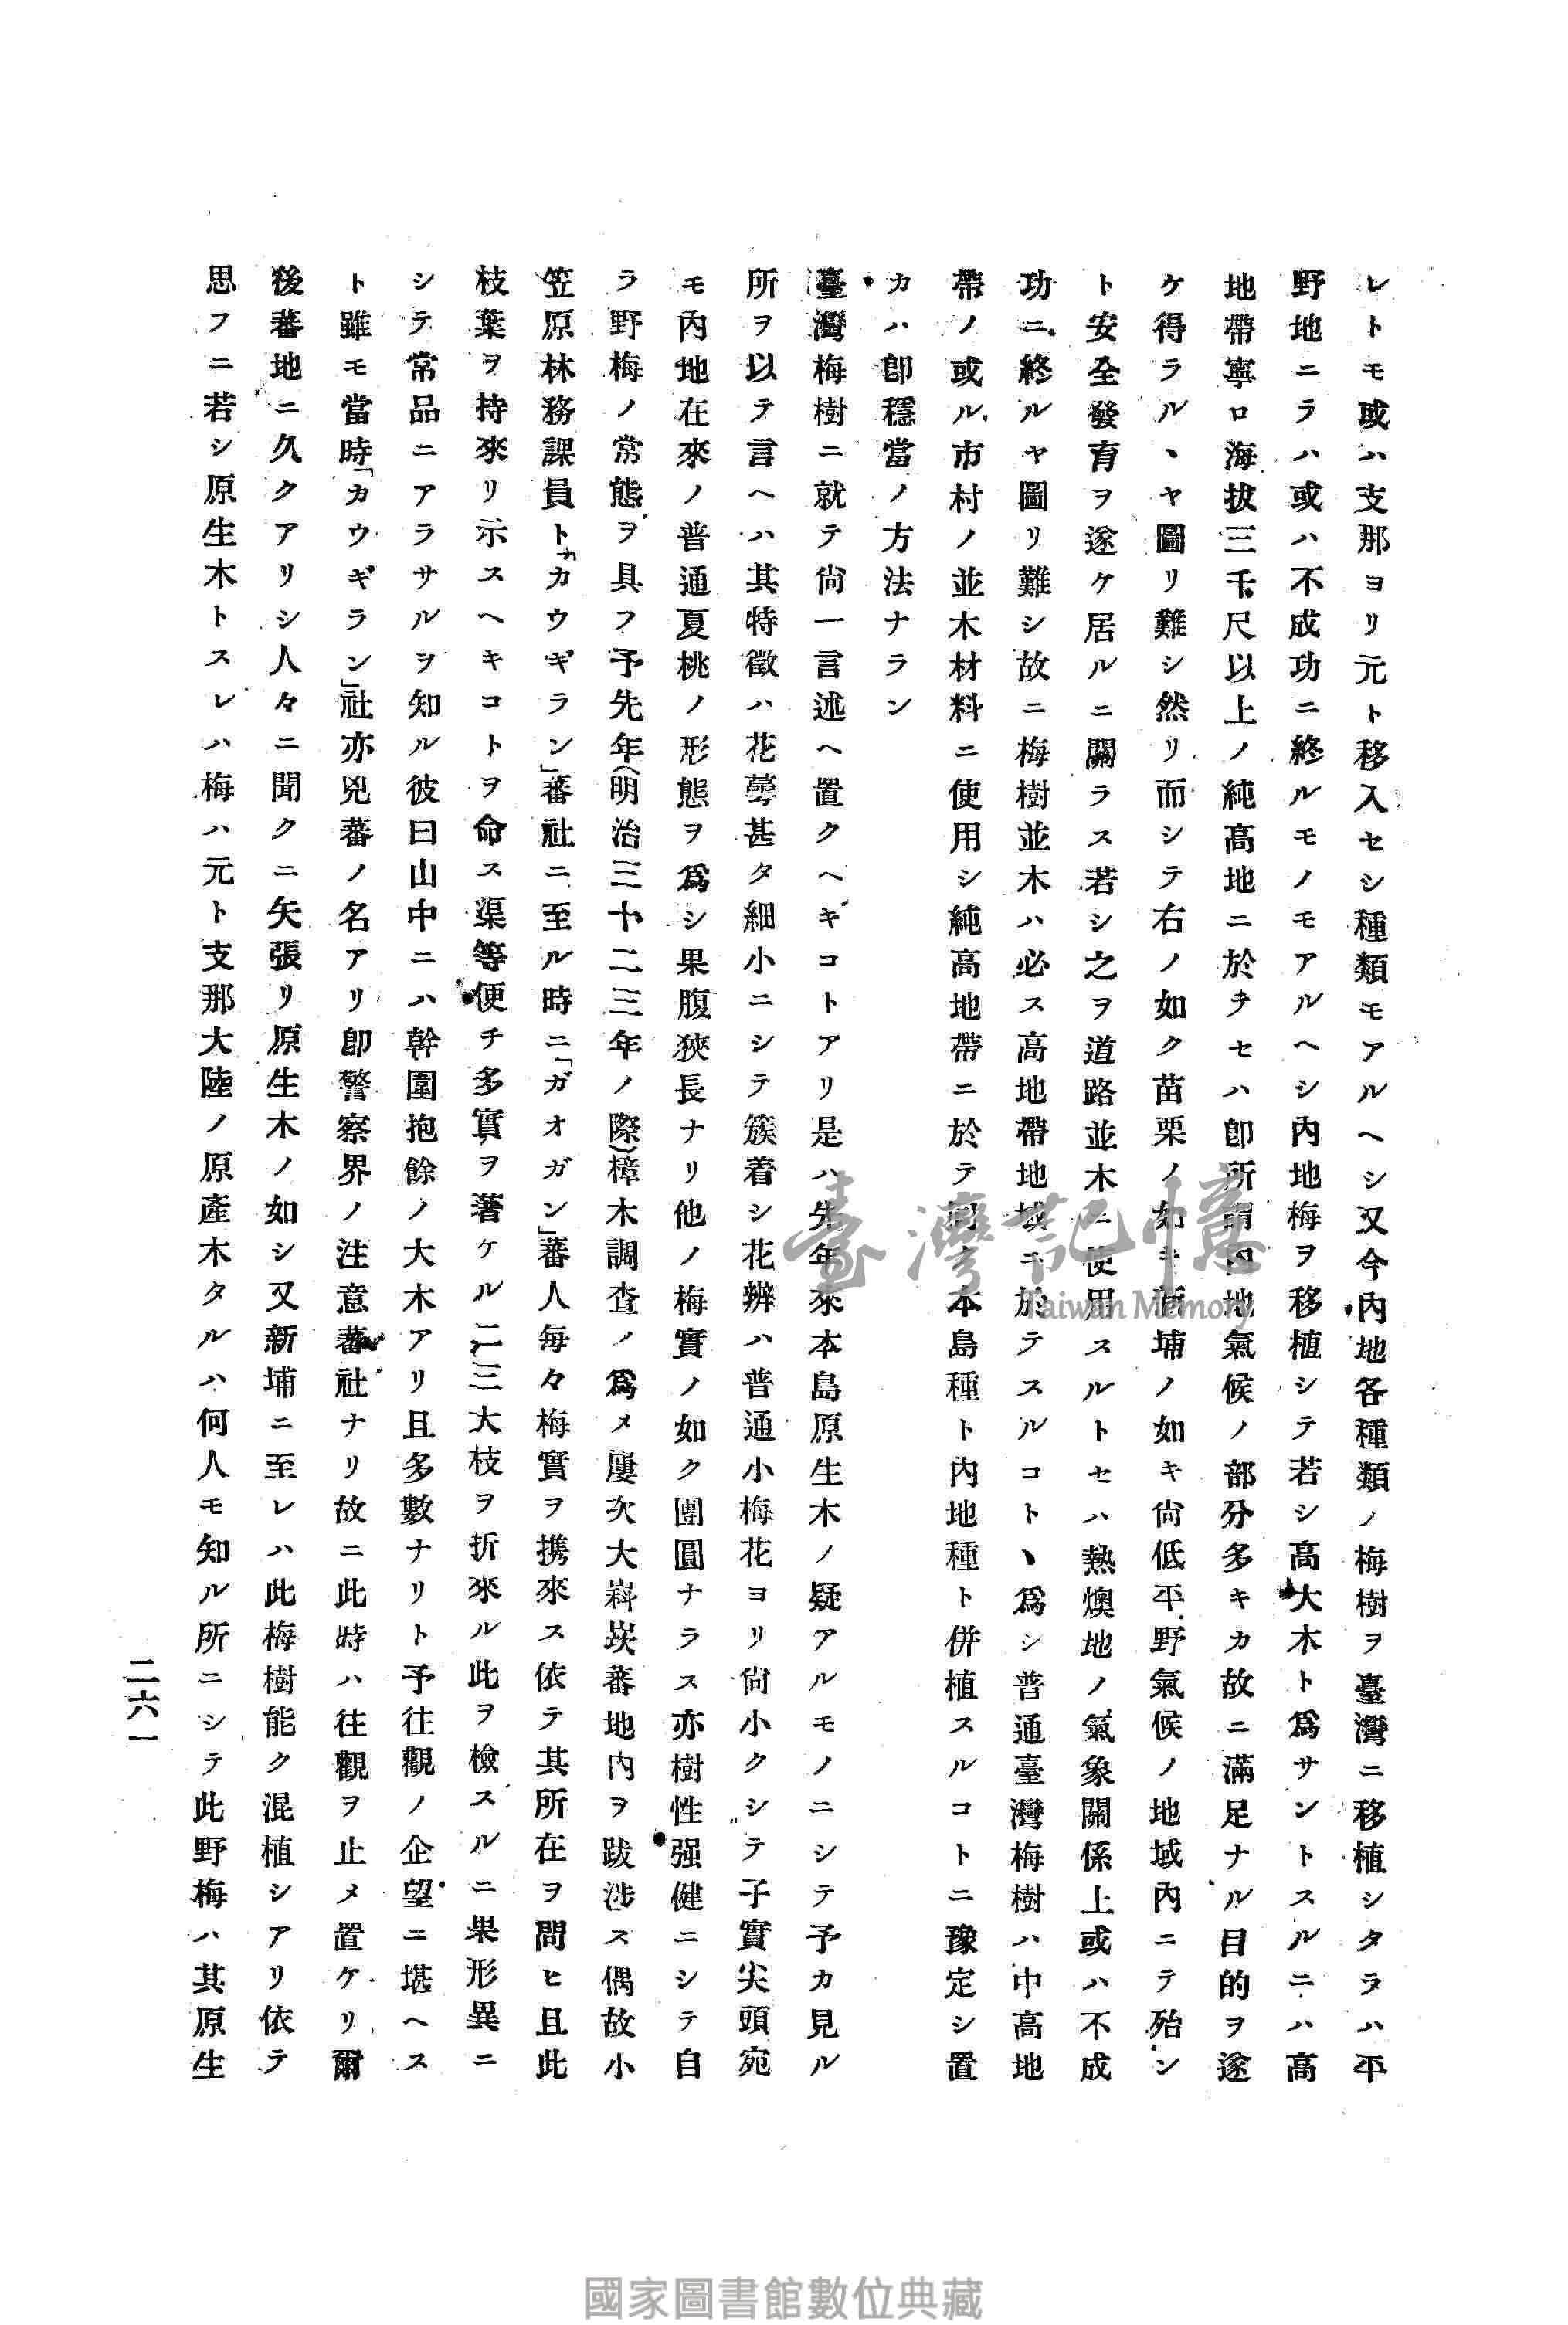 レトモ或ハ支那ヨリ元ト移入セシ種類モアルヘシ又今內地各種類ノ梅樹ヲ臺灣ニ移植シタラハ平
野地ニラハ或ハ不成功ニ終ルモノモアルヘシ內地梅ヲ移植シテ若シ高大木ト爲サントスルニハ高
地帶寧ロ海拔三千尺以上ノ純高地ニ於テセハ卽所謂內地氣候ノ部分多キカ故ニ滿足ナル目的ヲ遂
ケ得ラル丶ヤ圖リ難シ然リ而シテ右ノ如ク苗栗ノ如キ新埔ノ如キ尙低平野氣候ノ地域內ニテ殆ン
ト安全發育ヲ遂ケ居ルニ關ラス若シ之ヲ道路並木ニ使用スルトセハ熱燠地ノ氣象關係上或ハ不成
功ニ終ルヤ圖リ難シ故ニ梅樹並木ハ必ス高地帶地域ニ於テスルコト丶爲シ普通臺灣梅樹ハ中高地
帶ノ或ル市村ノ並木材料ニ使用シ純高地帶ニ於テ本島種ト內地種ト併植スルコトニ豫定シ置
カハ卽穩當ノ方法ナラン
臺灣梅樹ニ就テ尙一言述ヘ置クヘキコトアリ是ハ先年來本島原生木ノ疑アルモノニシテ予カ見ル
所ヲ以テ言ヘハ其特徵ハ花蕚甚タ細小ニシテ簇着シ花辨ハ普通小梅花ヨリ尙小クシテ子實尖頭宛
モ內地在來ノ普通夏桃ノ形態ヲ爲シ果腹狹長ナリ他ノ梅實ノ如ク團圓ナラス亦樹性强健ニシテ自
ラ野梅ノ常態ヲ具フ予先年(明治三十二三年ノ際)樟木調査ノ爲メ屢次大嵙崁蕃地內ヲ跋涉ス偶故小
笠原林務課員ト「カウギラン」蕃社ニ至ル時ニ「ガオガン」蕃人每々梅實ヲ携來ス依テ其所在ヲ問ヒ且此
枝葉ヲ持來リ示スヘキコトヲ命ス渠等便チ多實ヲ著ケル二三大枝ヲ折來ル此ヲ檢スルニ果形異ニ
シテ常品ニアラサルヲ知ル彼曰山中ニハ幹圍抱餘ノ大木アリ且多數ナリト予往觀ノ企望ニ堪ヘス
ト雖モ當時「カウギラン」社亦兇蕃ノ名アリ卽警察界ノ注意蕃社ナリ故ニ此時ハ往觀ヲ止メ置ケリ爾
後蕃地ニ久クアリシ人々ニ聞クニ矢張リ原生木ノ如シ又新埔ニ至レハ此梅樹能ク混植シアリ依テ
思フニ若シ原生木トスレハ梅ハ元ト支那大陸ノ原產木タルハ何人モ知ル所ニシテ此野梅ハ其原生
二六一
臺灣記憶
Taiwan Memory
國家圖書館數位典藏